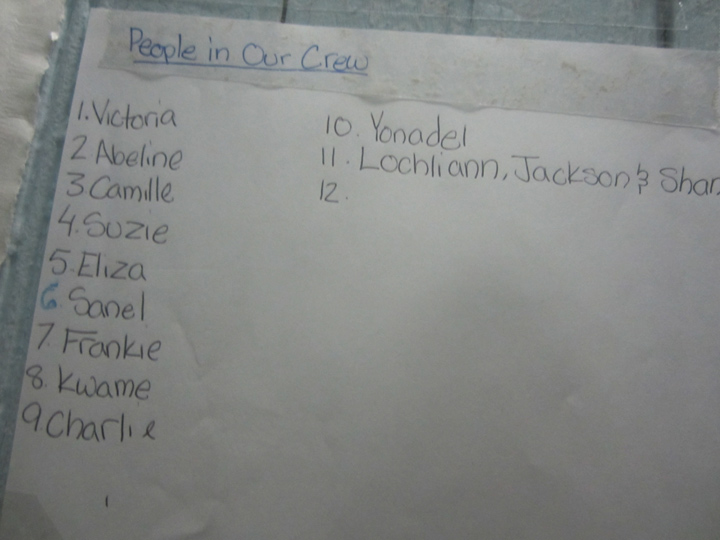 People in Our Crew
1. Victoria
2 Abeline
3 Camille
4. Suzie
5. Eliza
6. Sanel
7. Frankie
8. Kwame
9 Charlie
10. Yonadel
11. Lochliann, Jackson & Shar
12.